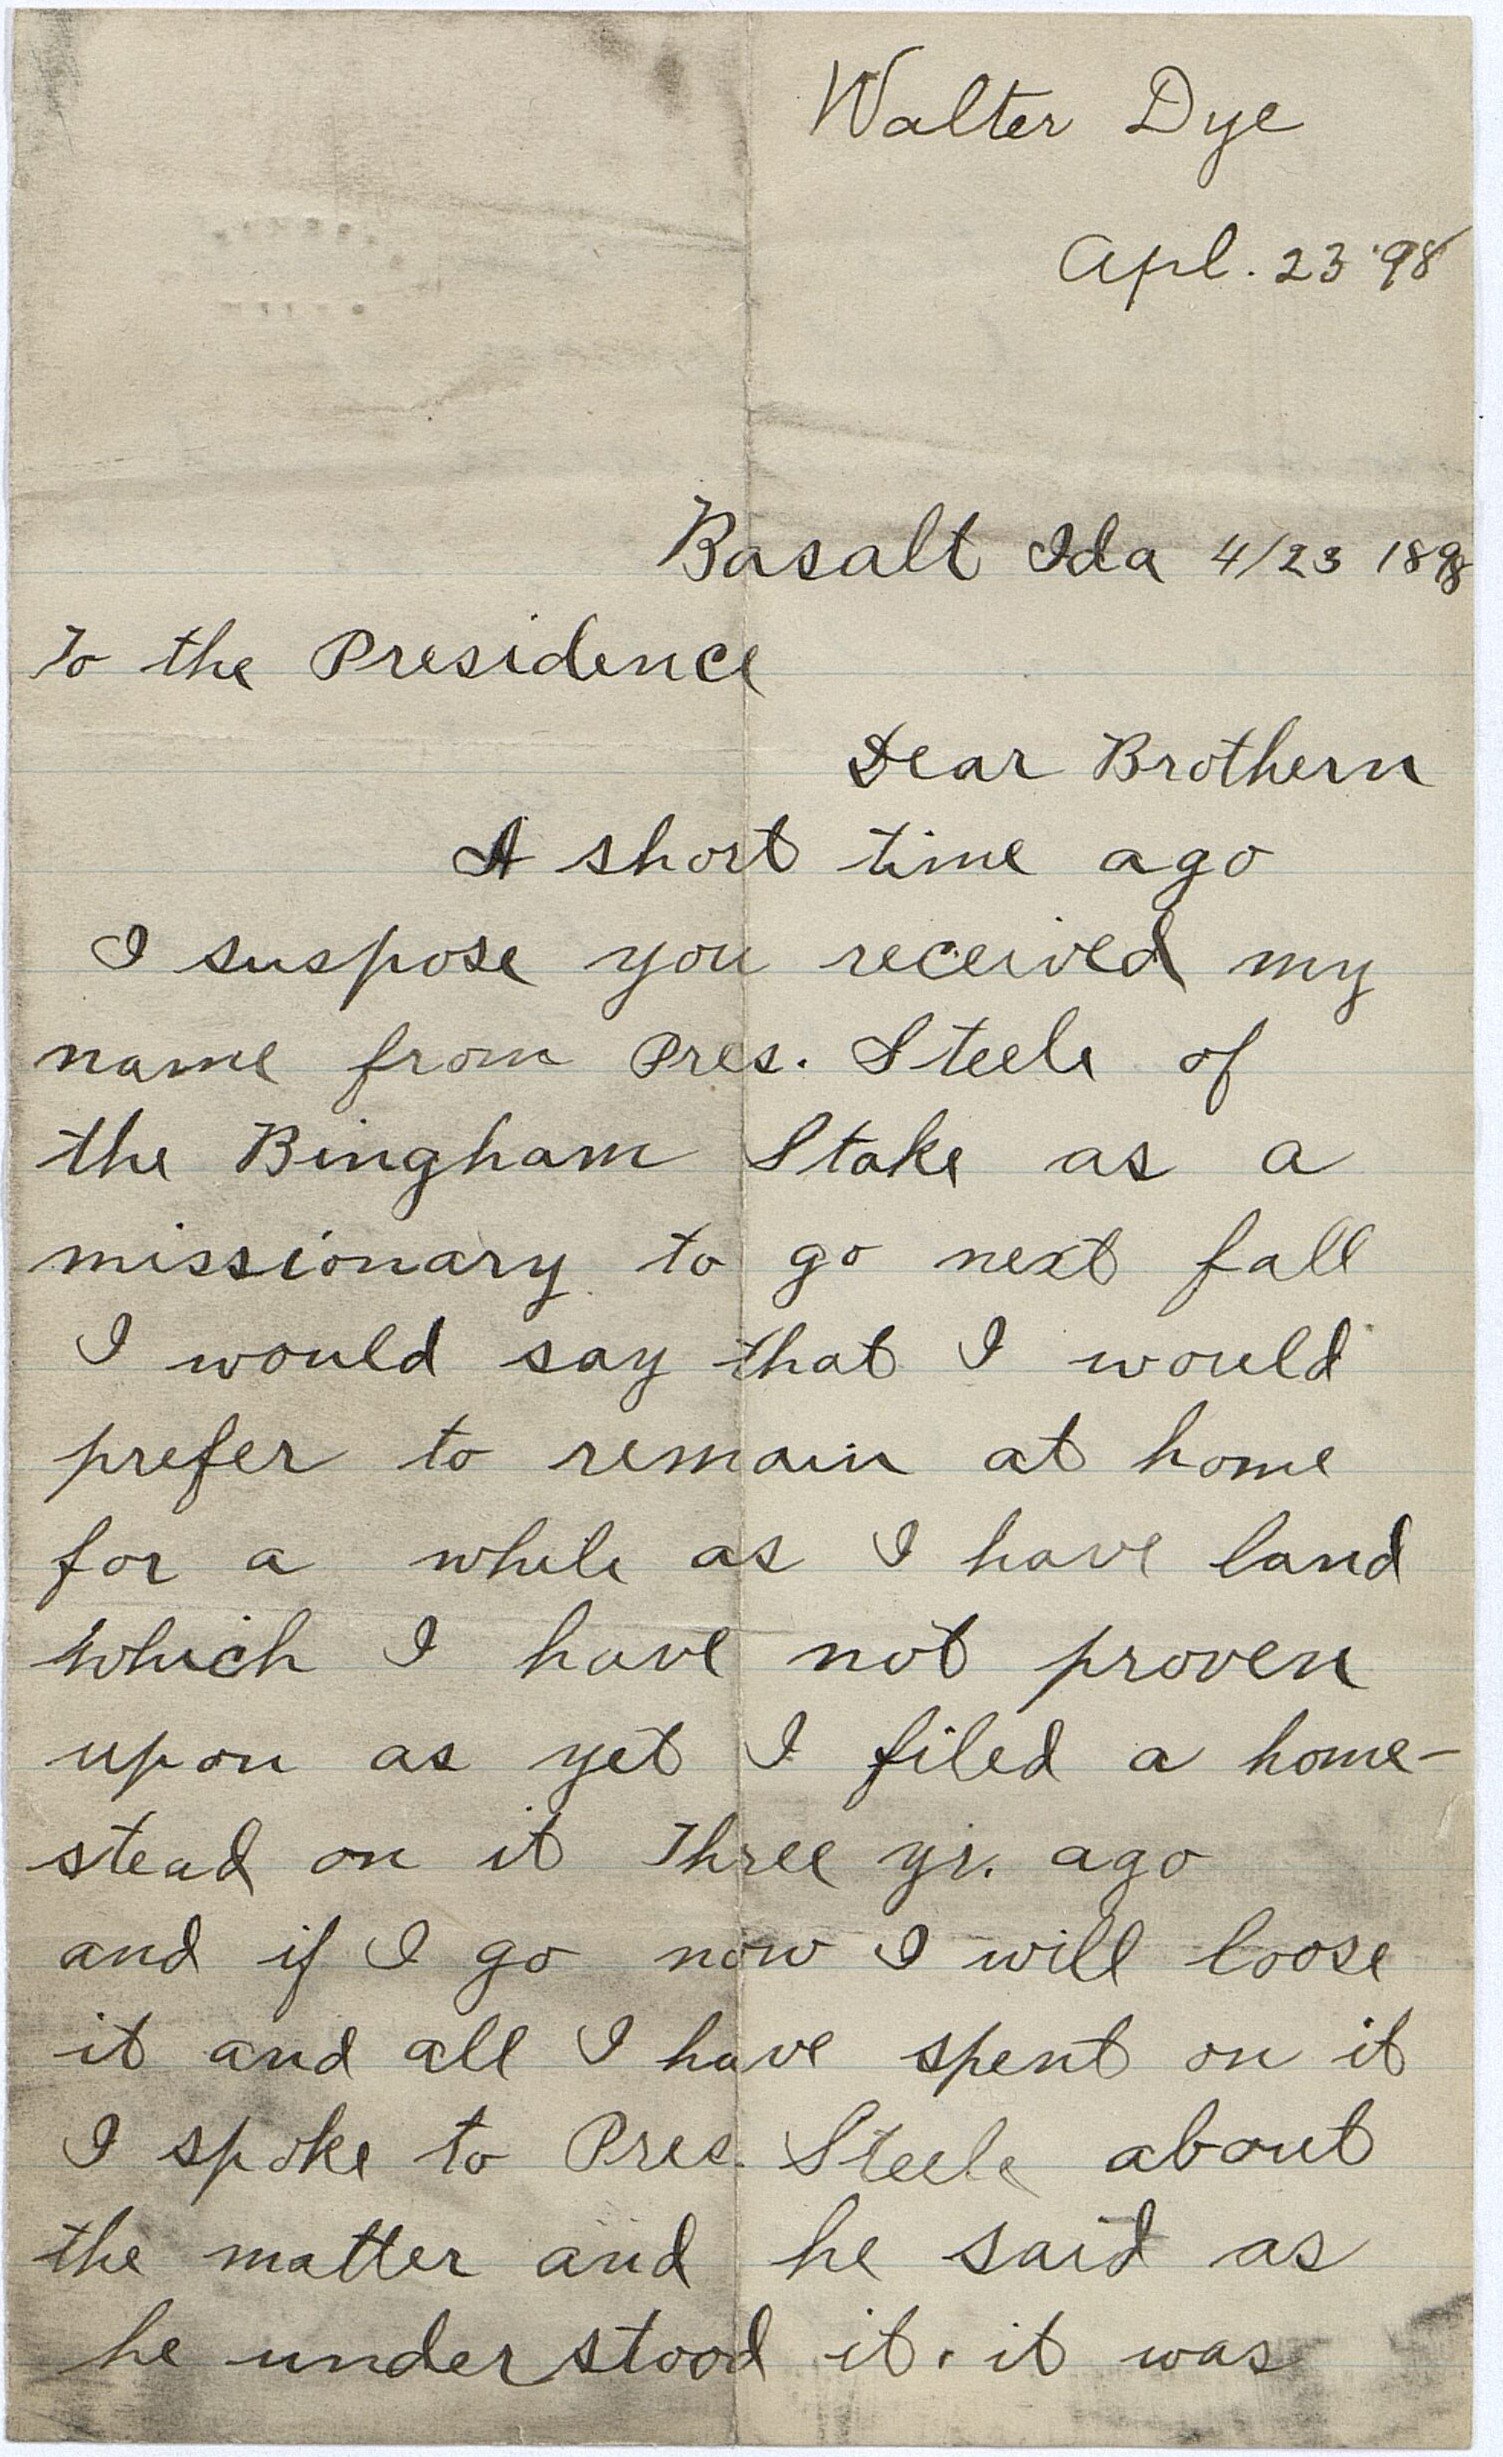 Walter Dye
Apl. 23 '98
Basalt Ida 4/23 1898
To the Presidence
Dear Brothern
A short time ago
I suspose you received my
name from Pres. Steele of
the Bingham Stake as a
missionary to go next fall
I would say that I would
prefer to remain at home
for a while as I have land
which I have not proven
upon as yet I filed a home-
stead on it three yr. ago
and if I go now I will loose
it and all I have spent on it
I spoke to Pres. Steele about
the matter and he said as
he understood it. it was